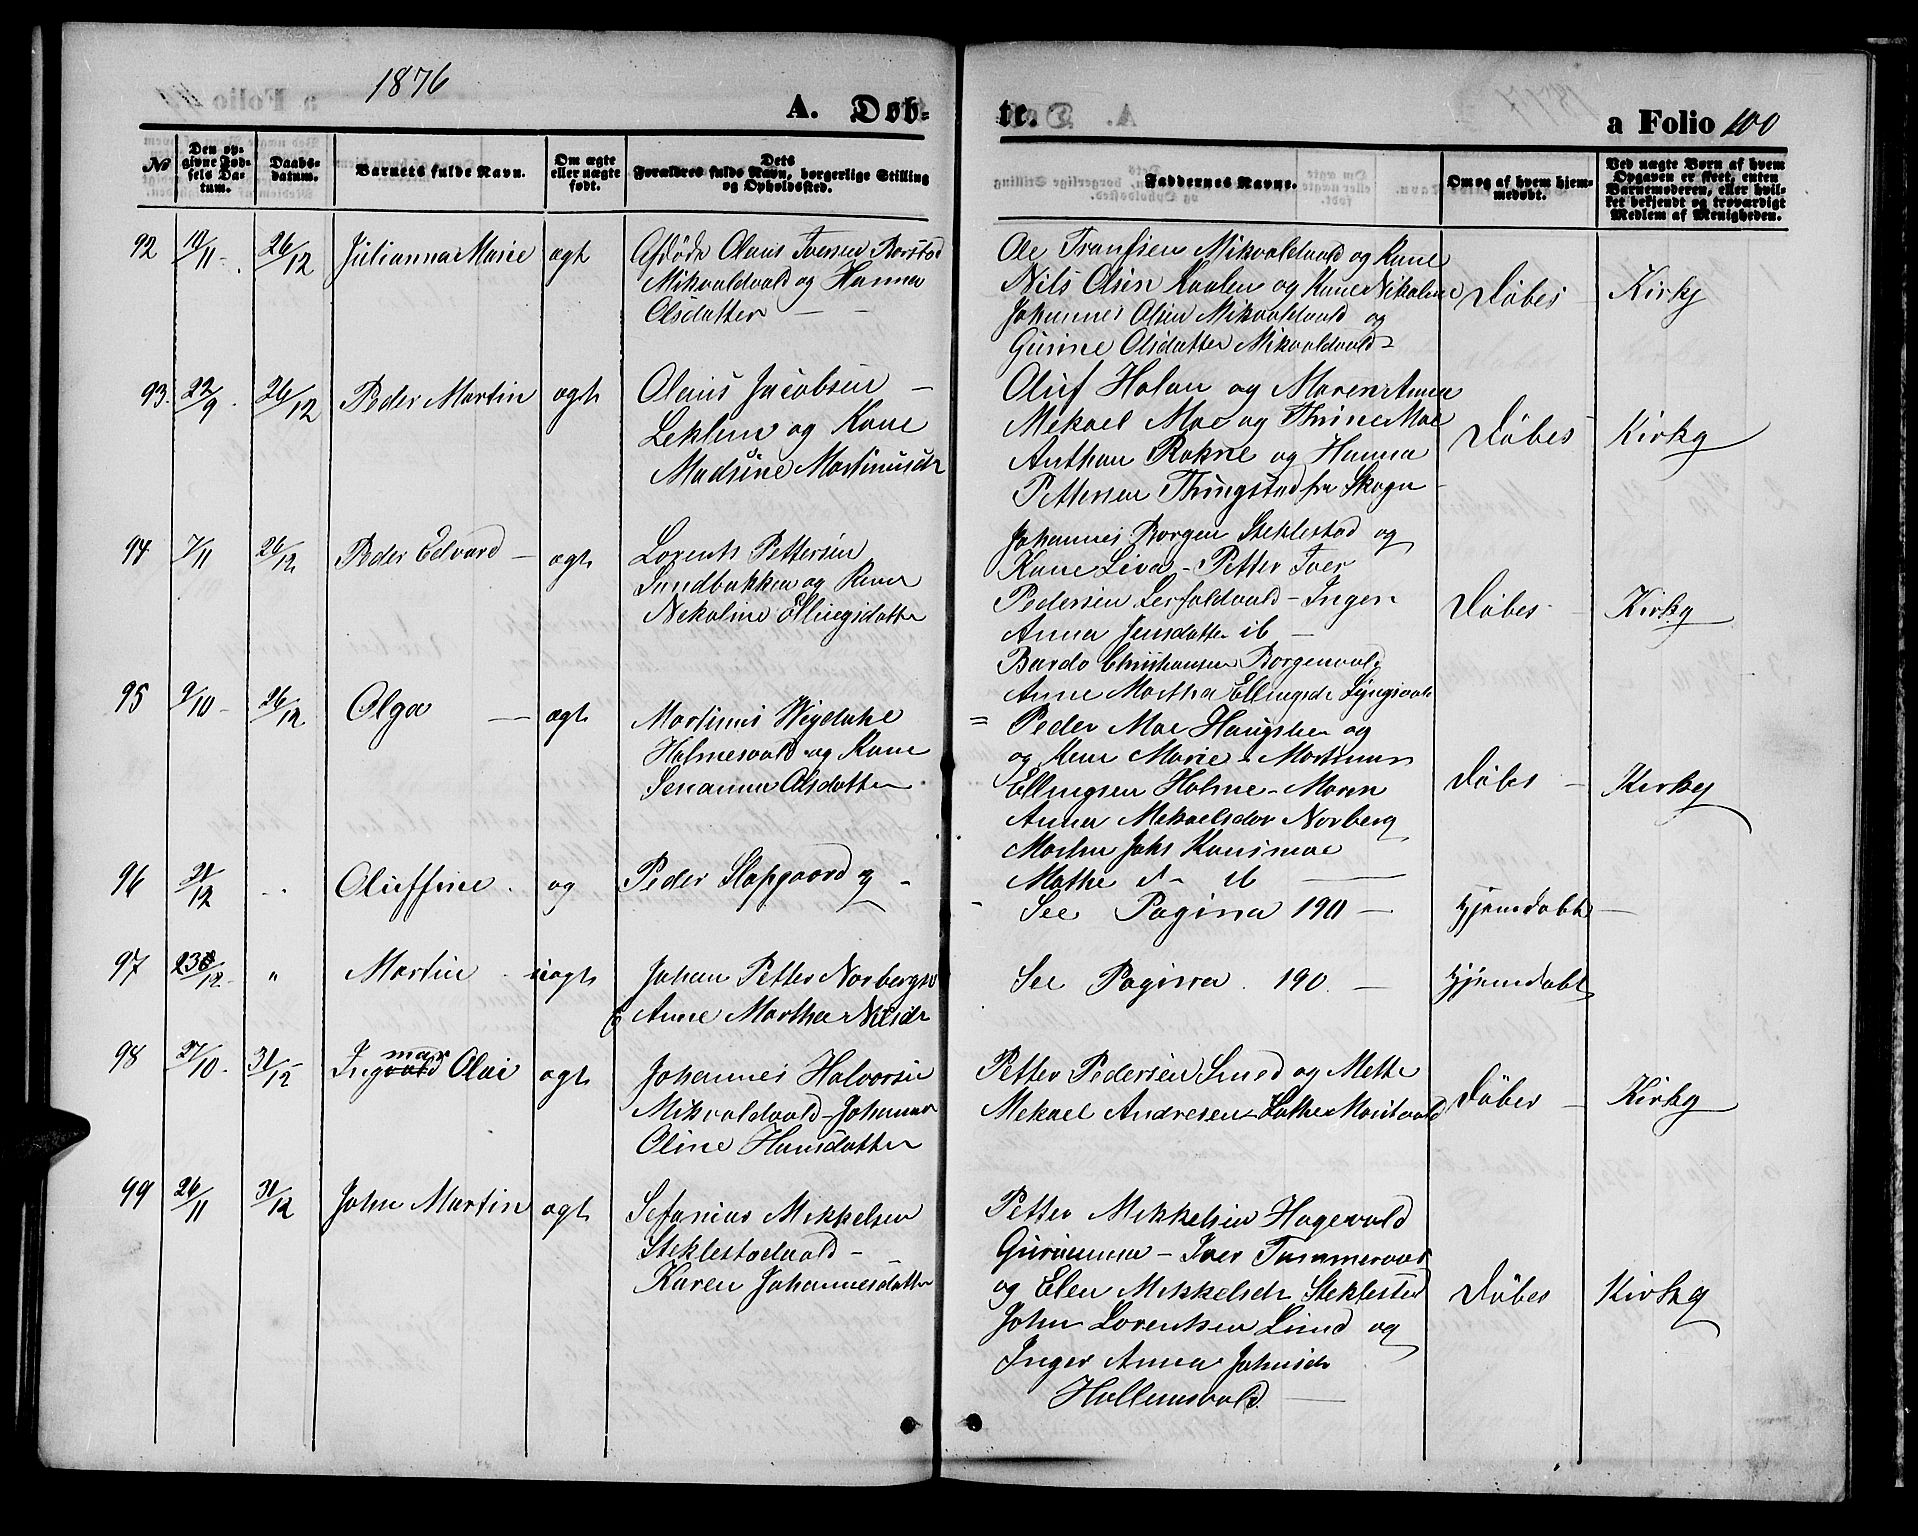 1876
A. Döb-
te.
a Folio 100
No
Den op-
givne Fød-
sels Da-
tum.
Daabs-
datum.
Barnets fulde Navn.
Om ægte
eller uægte
født.
Dets
Forældres fulde Navn, borgerlige Stilling
og Opholdssted.
Faddernes Navne.
Om og af hvem hjem-
medøbt.
Ved uægte Børn af hvem
Opgaven er skeet, enten
Barnemoderen, eller hvil-
ket bekjendt og troværdigt
Medlem af Menigheden.
92 19/11 26/12 Julianna Marie ægt
Afdøde Olaus Iversen Borstad
Mikvoldvald og Hanna
Olsdatter
Ole Trondsen Mikvoldvald og Kone
Nils Olsen Kaalen og Kone Nikoline
Johannes Olsen Mikvoldvald og
Gurine Olsdatter Mikvoldvald
Döbes Kirky
93. 22/9 26/12 Peder Martin ægt
Olaus Jacobsen
Leklem og Kone
Madsine Martinusdr
Oluf Holan og Maren Anna
Mekael Moe og Thrine Moe
Anthon Rokne og Hanna
Pettersen Thingstad fra Skogn
Döbes Kirky
94 7/11 26/12 Peder Edvard ægt
Lorents Pettersen
Sundbakken og Kone
Nekoline Ellingsdatter
Johannes Borgen Steklestad og
Kone Liva - Petter Iver
Pedersen Lerfaldvald - Inger
Anna Jensdatter ib
Bardo Christiansen Borgenvald
Anne Martha Ellingsdr Lyngsvald
Döbes Kirky
95 9/10 26/12 Olga ægt
Martinus Wigdahl
Holmesvald og Kone
Serianna Olsdatter
= Peder Moe Haugsher og
og Kone Marie - Martinus
Ellingsen Holme - Maren
Anna Mekaelsdr Norberg
Martin Johs Kausmoe
Mathe d- ib
Döbes Kirky
96 21/12 Oluffine æg
Peder Slapgaard og
See Pagina 190
Hjemdöbt
97 23/12 " Martin uægt
Johan Petter Norbergsv
& Anne Martha Nilsdr
See Pagina 190.
Hjemdöbt
98 27/10 31/12 Ingvald mar Olai ægt
Johannes Halvorsen
Mikvoldvald - Johanna
Oline Hansdatter
Petter Pedersen Lund og Mette
Mekael Andresen - Lathe Maritvald
Döbes Kirky
99 26/11 31/12 John Martin ægt
Sefanias Mikkelsen
Steklestadvald
Karen Johannesdatter
Petter Mikkelsen Hagevald
Gurianna - Iver Tømmeraas
og Elen Mikkelsdr Steklestad
John Lorentsen Lund og
Inger Anna Johnsdr
Hallemsvald
Döbes Kirky